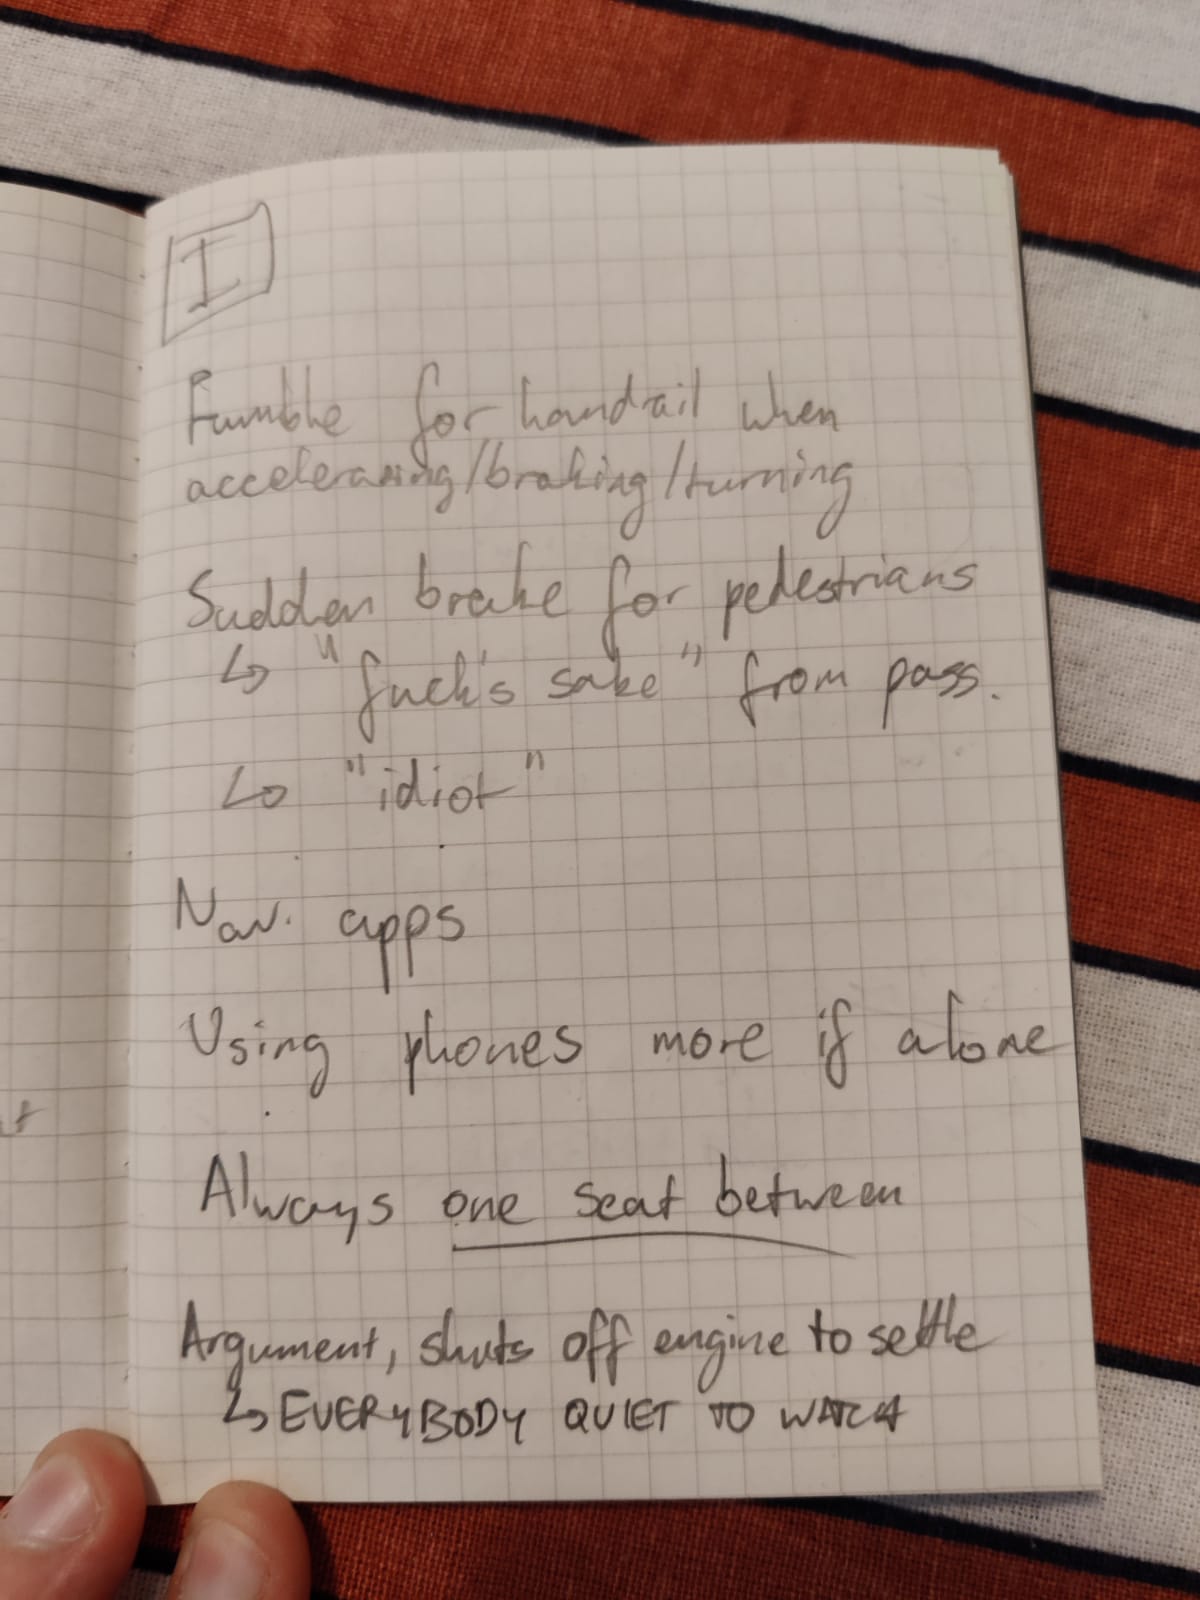 I
Fumble for handrail when
accelerating/braking/turning
Sudden brake for pedestrians
↳ "fuck's sake" from pass.
↳ "idiot"
Nav. apps
Using phones more if alone
Always one seat between
Argument, shuts off engine to settle
↳ EVERYBODY QUIET TO WATCH